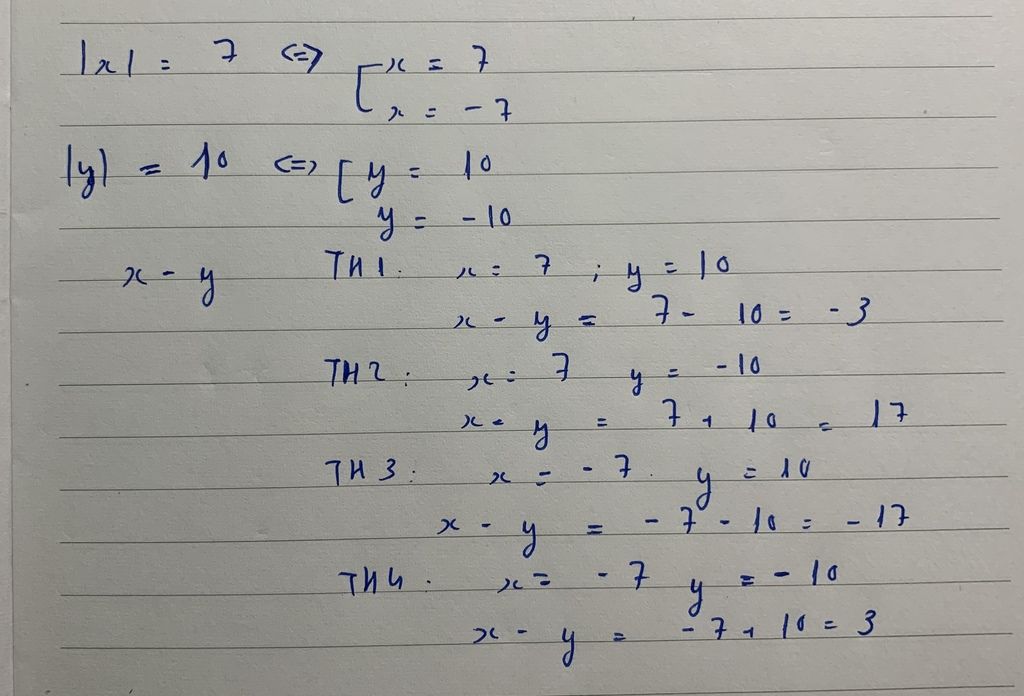 |x| = 7 <=> [ x = 7
x = -7
|y| = 10 <=> [ y = 10
y = -10
x - y TH1. x = 7 ; y = 10
x - y = 7 - 10 = -3
TH2 : x = 7 y = -10
x - y = 7 + 10 = 17
TH3 : x = -7. y = 10
x - y = -7 - 10 = -17
TH4. x = -7 y = -10
x - y = -7 + 10 = 3